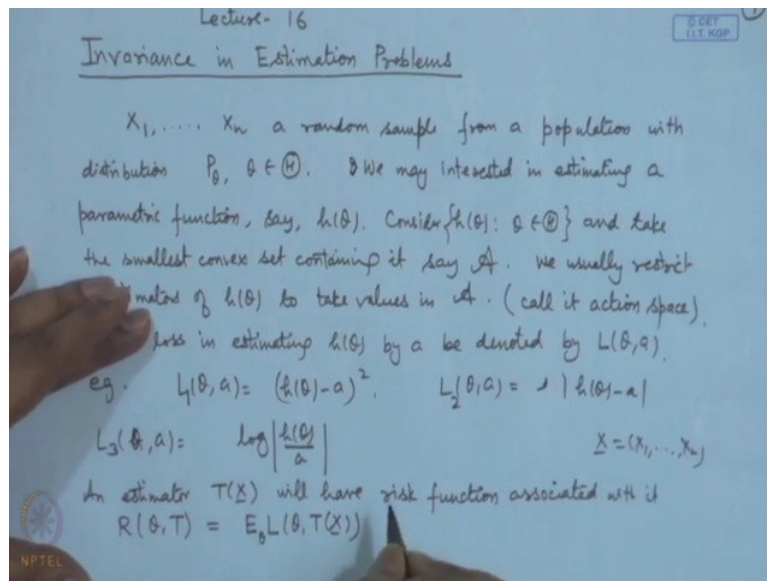 Lecture - 16
© CET
I.I.T. KGP
Invariance in Estimation Problems
X₁, ..... Xₙ a random sample from a population with
distribution P_θ, θ ∈ Ⓗ. We may interested in estimating a
parametric function, say, h(θ). Consider {h(θ): θ ∈ Ⓗ} and take
the smallest convex set containing it say 𝒜. We usually restrict
of h(θ) to take values in 𝒜. (call it action space).
loss in estimating h(θ) by a be denoted by L(θ,a).
eg. L₁(θ,a) = (h(θ)-a)². L₂(θ,a) = |h(θ)-a|
L₃(θ,a) = log|h(θ)/a| X = (X₁,...,Xₙ)
An estimator T(X) will have risk function associated with it
R(θ,T) = E_θ L(θ,T(X))
NPTEL